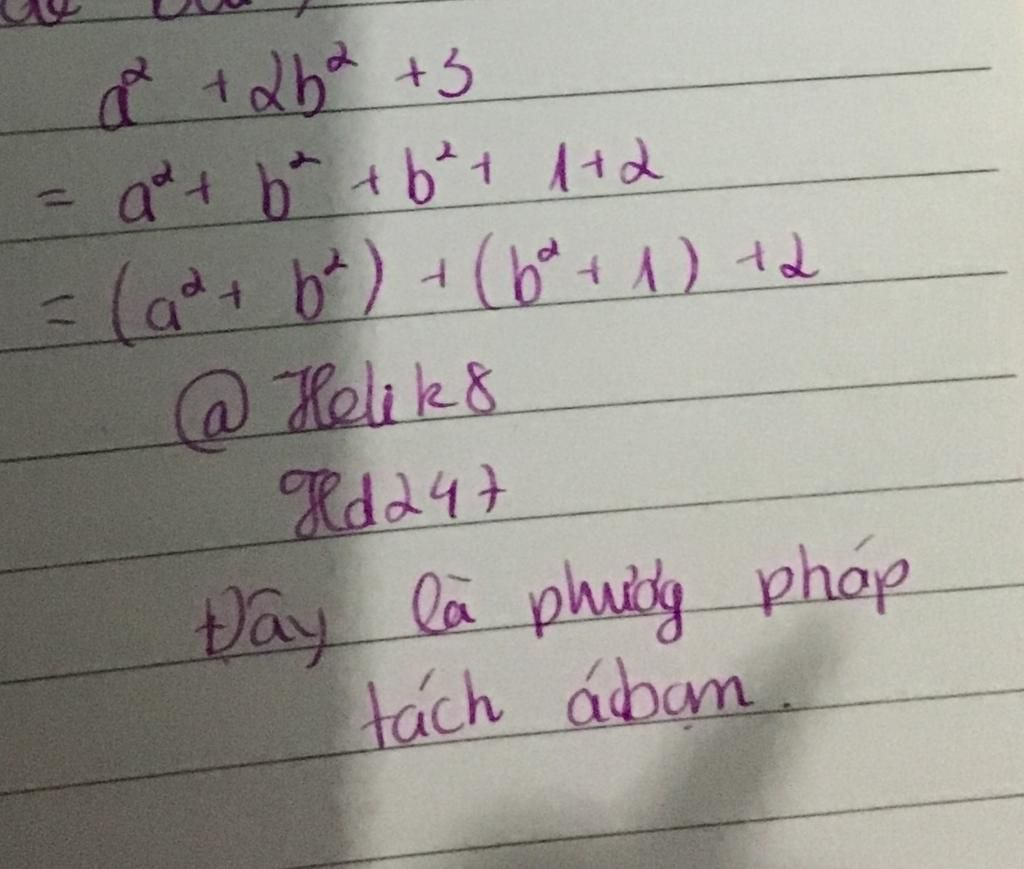 a² + 2b² + 3
= a² + b² + b² + 1 + 2
= (a² + b²) + (b² + 1) + 2
@ Helik8
Hd247
Đây là phương pháp
tách á bạn.